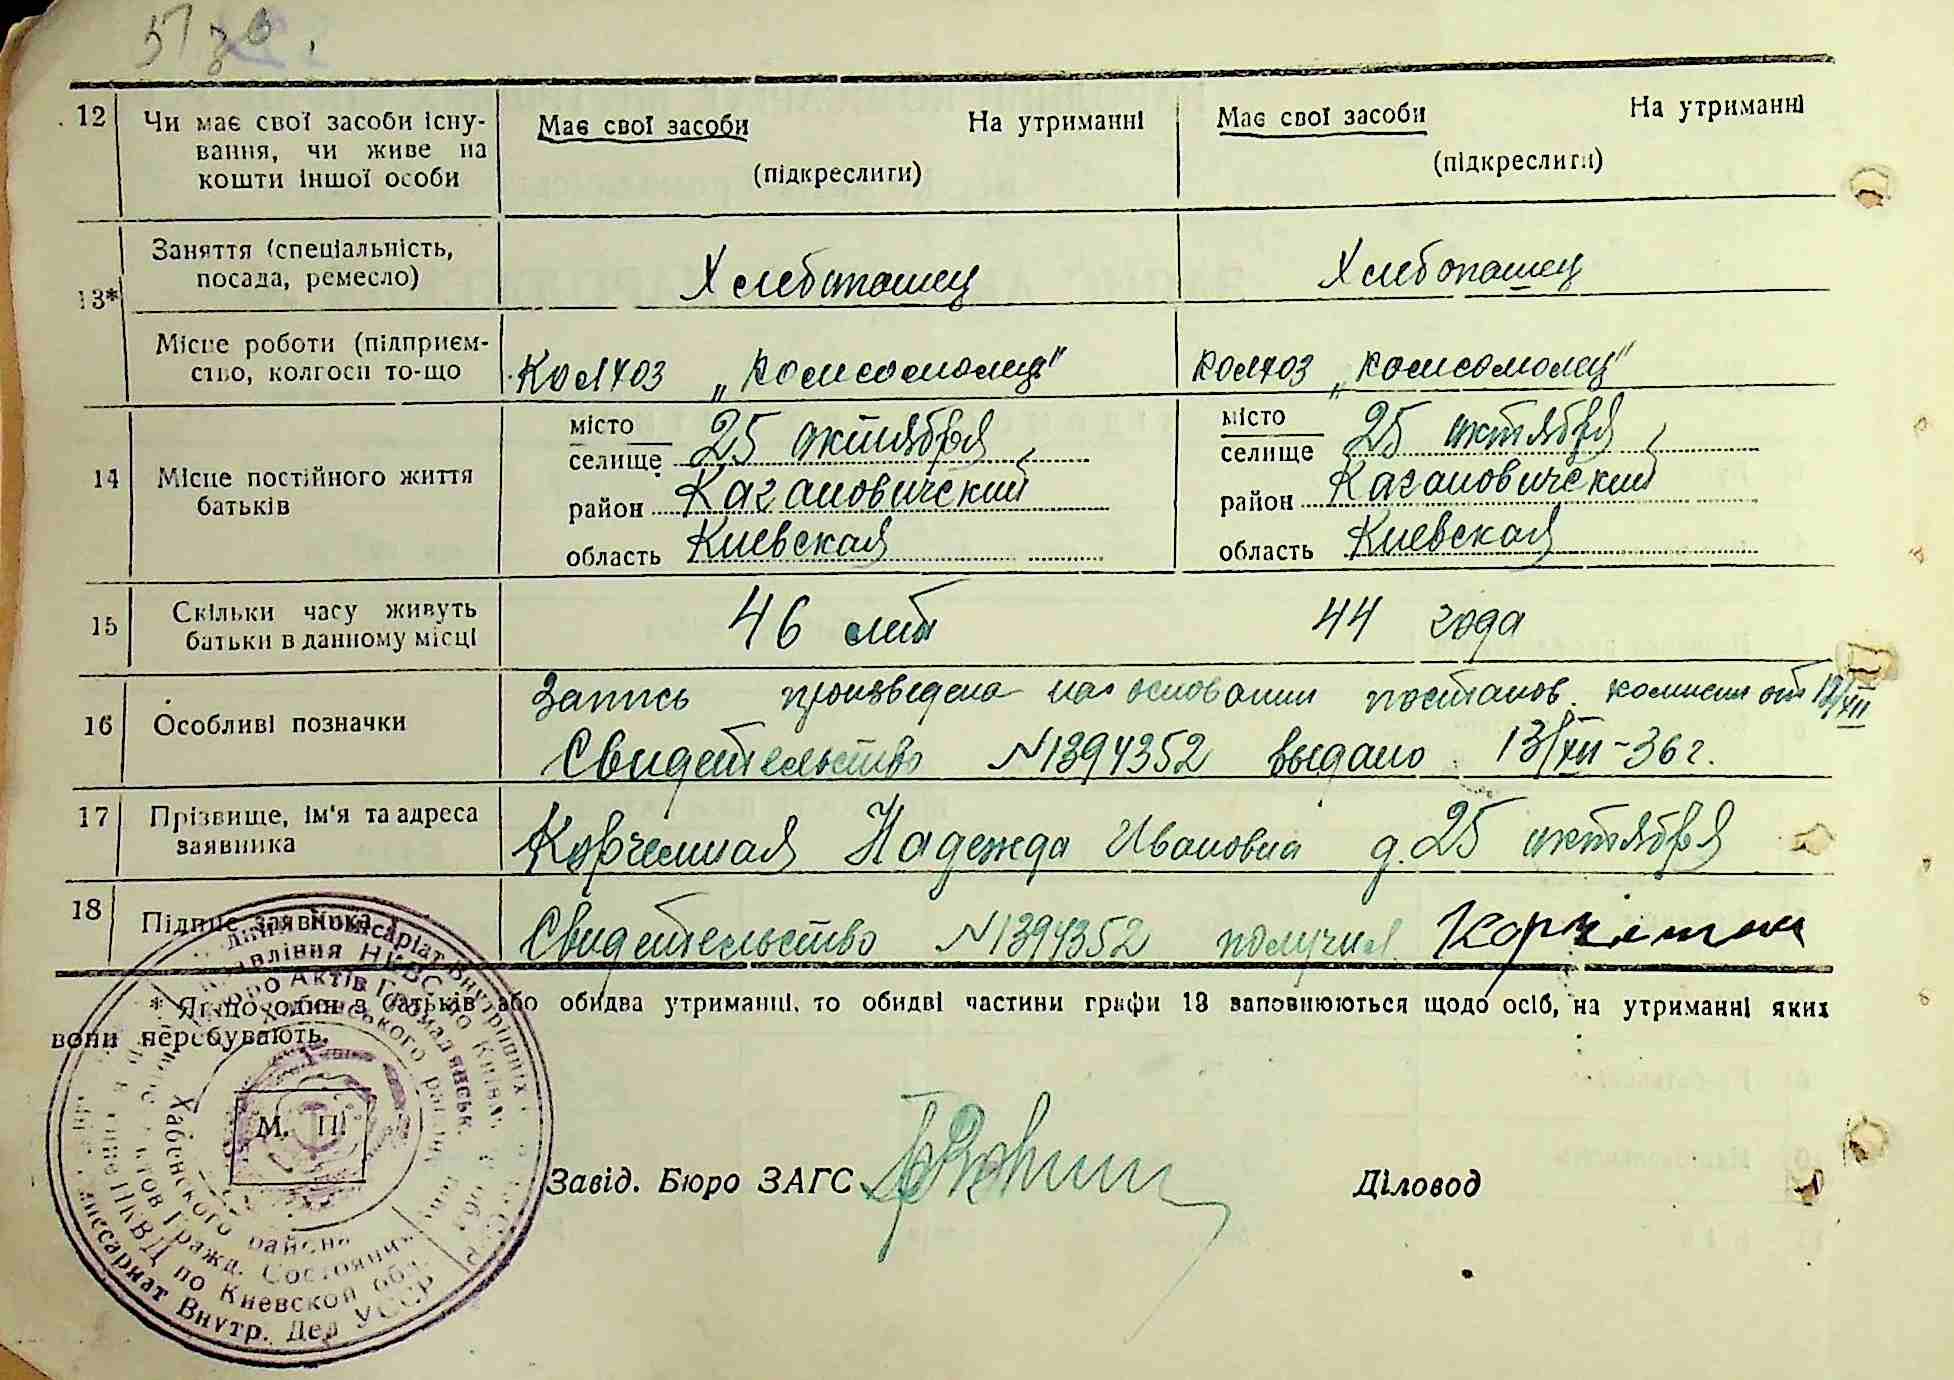 12 Чи має свої засоби існу- Має свої засоби На утриманні Має свої засоби На утриманні
вання, чи живе на
кошти іншої особи (підкреслити) (підкреслити)
13* Заняття (спеціальність,
посада, ремесло) Хлебопашец Хлебопашец
Місце роботи (підприєм-
ство, колгосп то-що Колхоз „Комсомолец" колхоз „Комсомолец"
14 Місце постійного життя
батьків
місто
селище 25 октября
район Кагановичский
область Киевская
місто
селище 25 октября
район Кагановичский
область Киевская
15 Скільки часу живуть
батьки в данному місці 46 лет 44 года
16 Особливі позначки Запись произведена на основании постанов. комиссии от 12/XII
Свидетельство №1394352 выдано 13/XII-36 г.
17 Прізвище, ім'я та адреса
заявника Корчемная Надежда Ивановна д. 25 октября
18 Підпис заявника Свидетельство №1394352 получил
* Якщо один з батьків або обидва утриманці, то обидві частини графи 13 заповнюються щодо осіб, на утриманні яких
вони перебувають.
М. П.
Завід. Бюро ЗАГС Діловод
Комісаріат Внутрішніх
Управління НКВС по Київськ. обл.
Бюро Актів Громадянськ.
Хабенского района
Актов Гражд. Состояния
НКВД по Киевской обл.
Комиссариат Внутр. Дел УССР